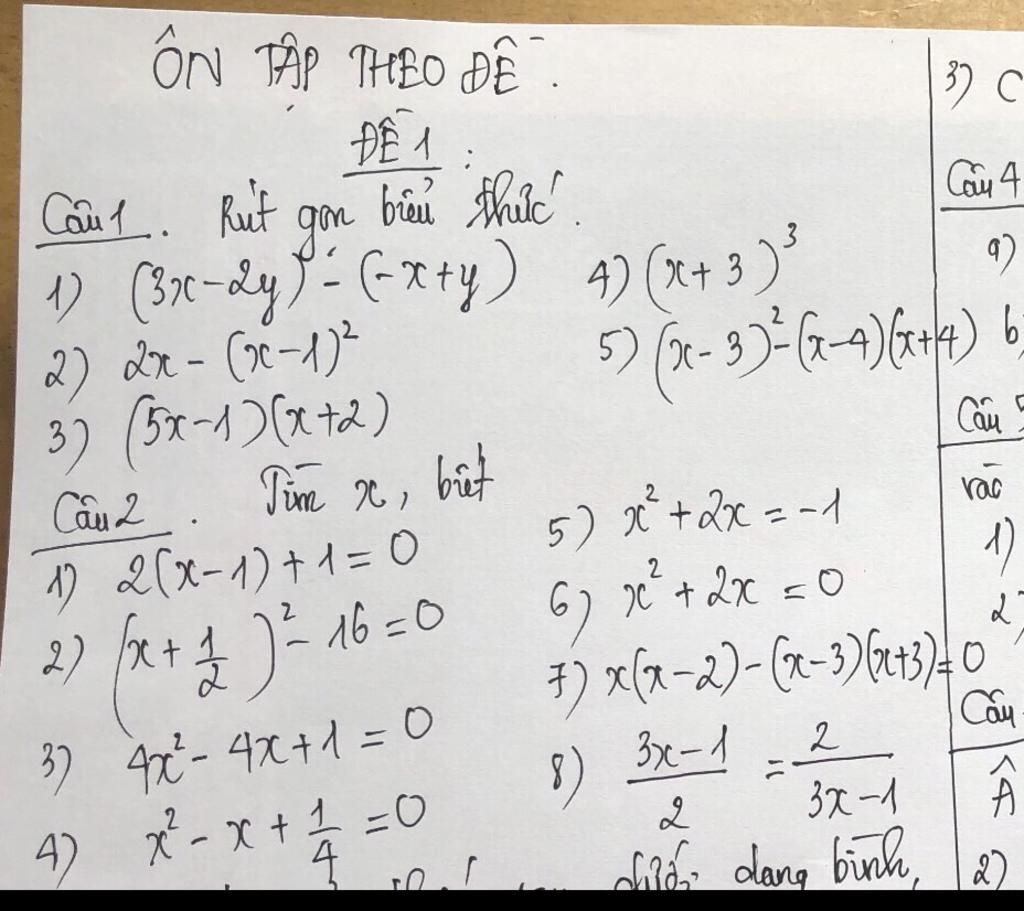 ÔN TẬP THEO ĐỀ.
ĐỀ 1:
Câu 1. Rút gọn biểu thức.
1) (3x-2y) - (-x+y)
2) 2x - (x-1)²
3) (5x-1)(x+2)
4) (x+3)³
5) (x-3)² - (x-4)(x+4)
Câu 2. Tìm x, biết
1) 2(x-1)+1=0
2) (x+1/2)² - 16 = 0
3) 4x² - 4x + 1 = 0
4) x² - x + 1/4 = 0
5) x² + 2x = -1
6) x² + 2x = 0
7) x(x-2) - (x-3)(x+3) = 0
8) (3x-1)/2 = 2/(3x-1)
dưới dạng bình
3) C
Câu 4
a)
b)
Câu 5
vào
1)
2)
Câu
Â
2)